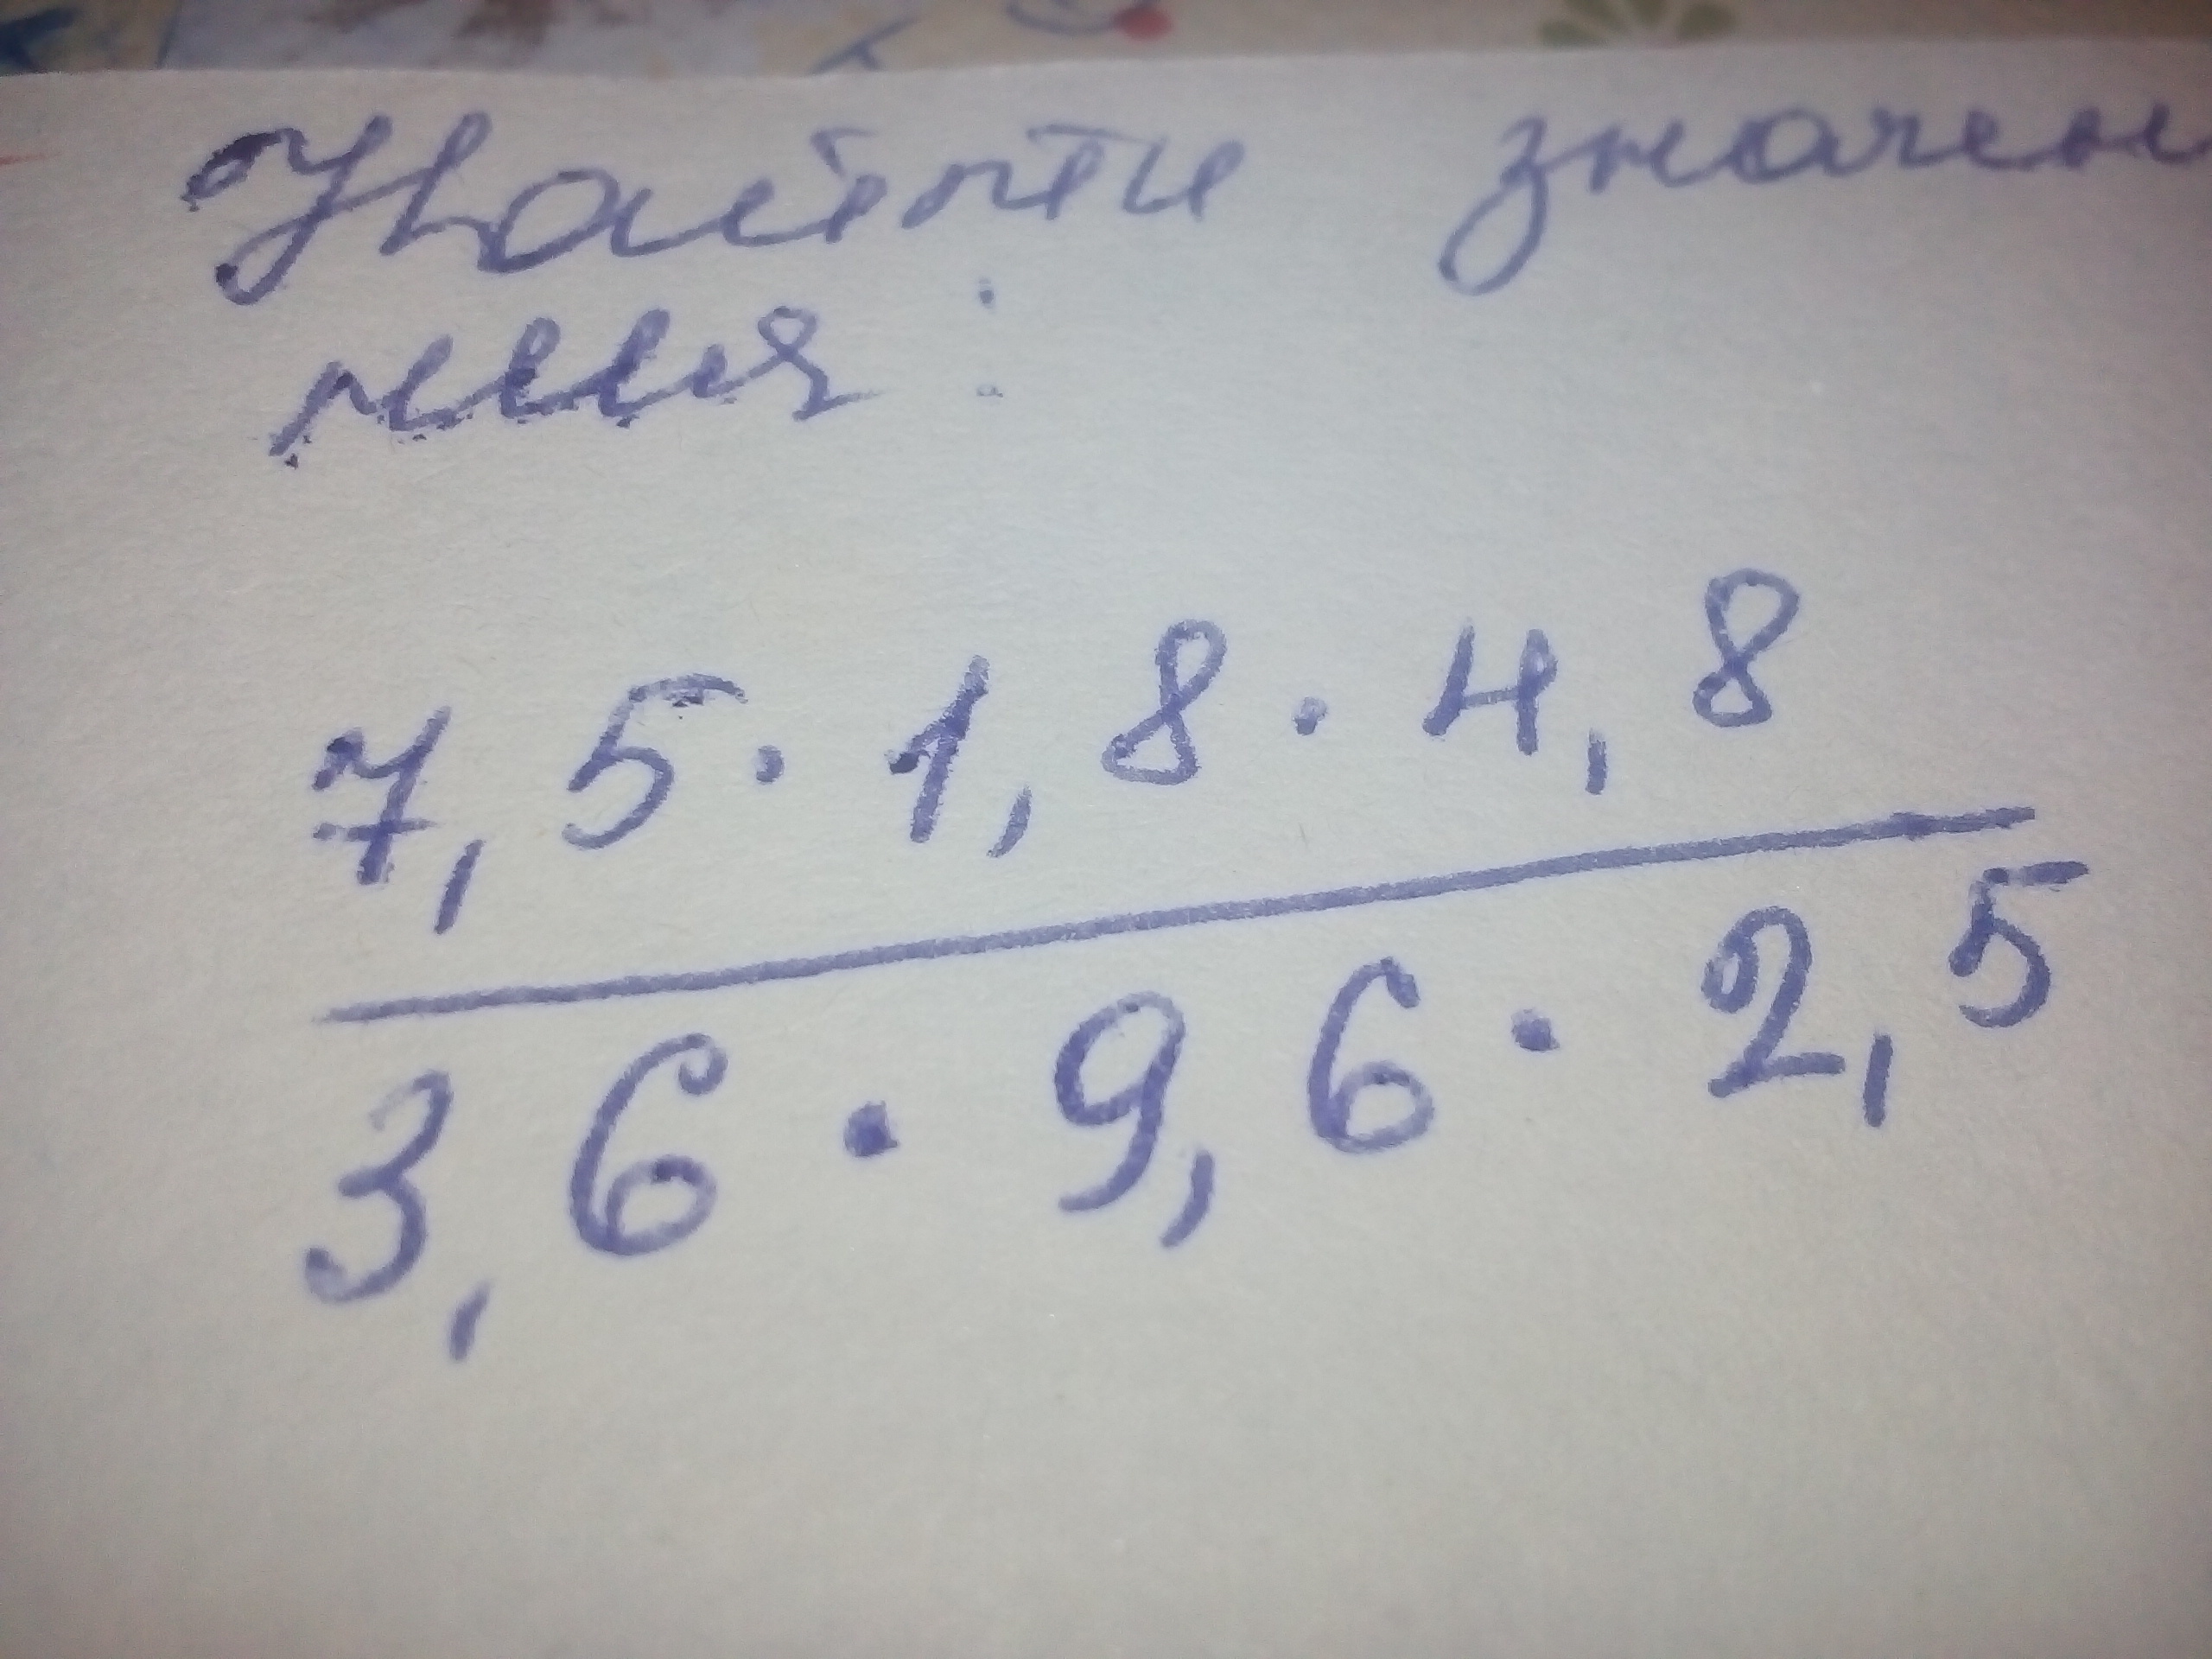 Найти значен
ния:
7,5 · 1,8 · 4,8
3,6 · 9,6 · 2,5